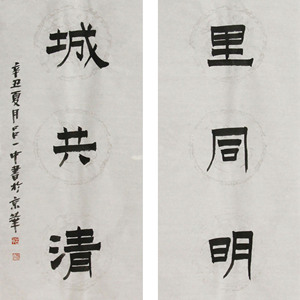 里同明
城共清
辛丑夏月吕一中書於京華